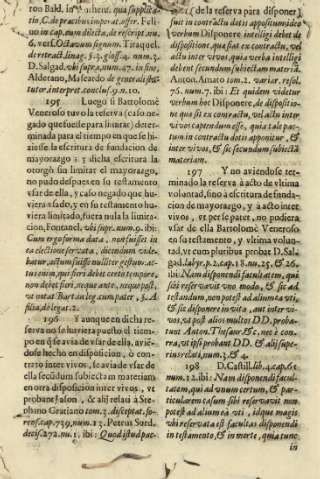 ron Bald. in
no in cap. cum dilecta, de rescript. nu.
6. vers. Octavum signum. Tiraquel.
de retract. linag. §.3. gloss.4. num.3.
D. Salgad. ubi supr. num.47. in fine,
Alderano, Mascardo de generali sta-
tutor. interpret. conclus.9. n.10.
195 Luego si Bartolomè
Veneroso tuvo la reserva (caso ne-
gado que fuesse para limitar) deter-
minada para el tiempo en que se hi-
ziesse la escritura de fundacion de
mayorazgo: y dicha escritura la
otorgò sin limitar el mayorazgo,
no pudo despues en su testamento
vsar de ella, y caso negado que hu-
viera vsado, y en su testamento hu-
viera limitado, fuera nula la limita-
cion, Fontanel. vbi supr. num.9. ibi:
Cum ergo forma data, non fuisset in
ea electione servata, dicendum vide-
batur, actum fuisse nullum: gestum ac-
tu enim, qui fieri debet certo tempore,
non debet fieri, neque ante, neque post,
vt notat Bart. in leg. cum pater, §. A
filia, de legat. 2.
196 Y aunque en dicha re-
serva no se huviera puesto el tiem-
po en que avia de vsar de ella, avien-
dose hecho en disposicion, ò con-
trato inter vivos, se avia de vsar de
ella secundum subiectam materiam
en otra disposicion inter vivos, vt
probant Iason, & alij relati à Ste-
phano Gratiano tom.3. disceptat. fo-
rens. cap.739. num.13. Petrus Surd.
decis.272. nu.1. ibi: Quod istud pac-
(de la reserva para disponer)
suit in contractu dotis appositum ideo
verbum Disponere intelligi debet de
dispositione, quæ fiat ex contractu, vel
actu inter vivos, quia verba intelligi
debent secundum subiectam materiam.
Anton. Amato tom.2. variar. resol.
76. num.7. ibi: Et quidem videtur
verbum hoc Disponere, de dispositio-
ne quæ fit ex contractu, vel actu inter
vivos capiendum esse, quia tale pac-
tum in contractu dotis apponitur, &
inter vivos, & sic secundum subiectā
materiam.
197 Y no aviendose ter-
minado la reserva à acto de vltima
voluntad, sino à escritura de funda-
cion de mayorazgo, y à acto inter
vivos, vt per se patet, no pudiera
vsar de ella Bartolomè Veneroso
en su testamento, y vltima volun-
tad, vt cum pluribus probat D. Sal-
gad. labyr. p.2. cap.18. nu.25. & 26.
ibi: Nam disponendi facultatem, qui
sibi reservavit vno modo, & sic ad
testandum, non potest ad alium ea vti,
& sic disponere in vita, aut inter vi-
vos, vt post alios multos DD. proba-
runt Anton. Thesaur. &c. nec è con-
tra, vt ipsi probant DD. & alij supe-
rius relati, num.3. & 4.
198 D. Castill. lib.4. cap.61.
num.12. ibi: Nam disponendi facul-
tatem, qui ad vnum certum, & par-
ticularem casum sibi reservavit non
potest ad alium ea vti, idque magis
vbi reservata est facultas disponendi
in testamento, & in morte, quia tunc
in